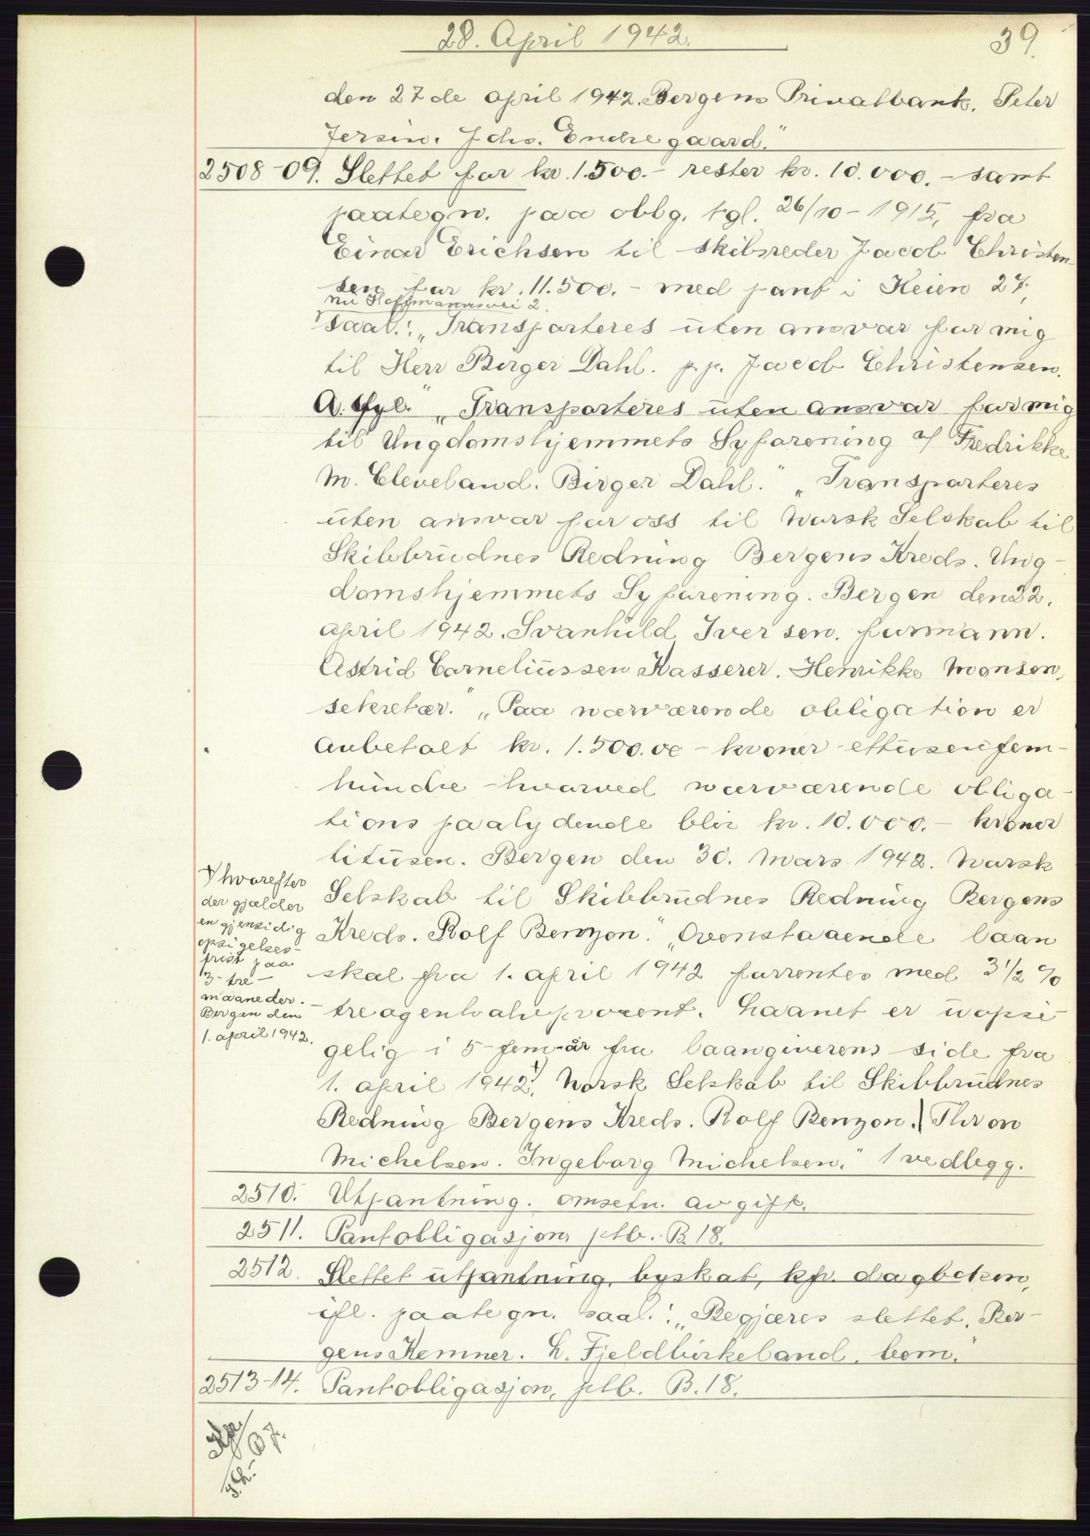 28. April 1942.
39.
den 27de april 1942. Bergens Privatbank. Peter
Jersin. Johs. Endregaard."
2508-09. Slettet for kr. 1.500.- rester kr. 10.000.- samt
paategn. paa oblg. tgl. 26/10-1915, fra
Einar Erichsen til skibsreder Jacob Christen-
sen for kr. 11.500.- med pant i Heien 27,
nu Hoffmannsvei 2.
saal.: „Transporteres uten ansvar for mig
til Herr Birger Dahl. p.p. Jacob Christensen.
A. Gyl." „Transporteres uten ansvar for mig
til Ungdomshjemmets Syforening v/ Fredrikke
M. Cleveland. Birger Dahl." „Transporteres
uten ansvar for oss til Norsk Selskab til
Skibbrudnes Redning Bergens Kreds. Ung-
domshjemmets Syforening. Bergen den 22.
april 1942. Svanhild Iversen. formann.
Astrid Corneliussen Kasserer. Henrikke Monsen,
sekretær." „Paa nærværende obligation er
avbetalt kr. 1.500.00 - kroner ettusenfem-
hundre - hvorved nærværende obliga-
tions paalydende blir kr. 10.000.- kroner
titusen. Bergen den 30. Mars 1942. Norsk
Selskab til Skibbrudnes Redning Bergens
Kreds. Rolf Benzon." „Ovenstaaende laan
skal fra 1. april 1942 forrentes med 3 1/2 %
- treogenhalvprocent. Laanet er uopsi-
gelig i 5-fem-år fra laangiverens side fra
1. april 1942.√ Norsk Selskab til Skibbrudnes
Redning Bergens Kreds. Rolf Benzon. Thron
Michelsen. Ingeborg Michelsen." 1 vedlegg.
√ hvorefter
der gjælder
en gjensidig
opsigelses-
frist paa
3- tre-
maaneder.
Bergen den
1. april 1942.
2510. Utpantning. omsetn. avgift.
2511. Pantobligasjon, ptb. B 18.
2512. Slettet utpantning, byskat, kfr. dagboken,
ifl. paategn. saal.: „Begjæres slettet. Ber-
gens Kemner. L. Fjeldbirkeland. bem."
2513-14. Pantobligasjon, ptb. B. 18.